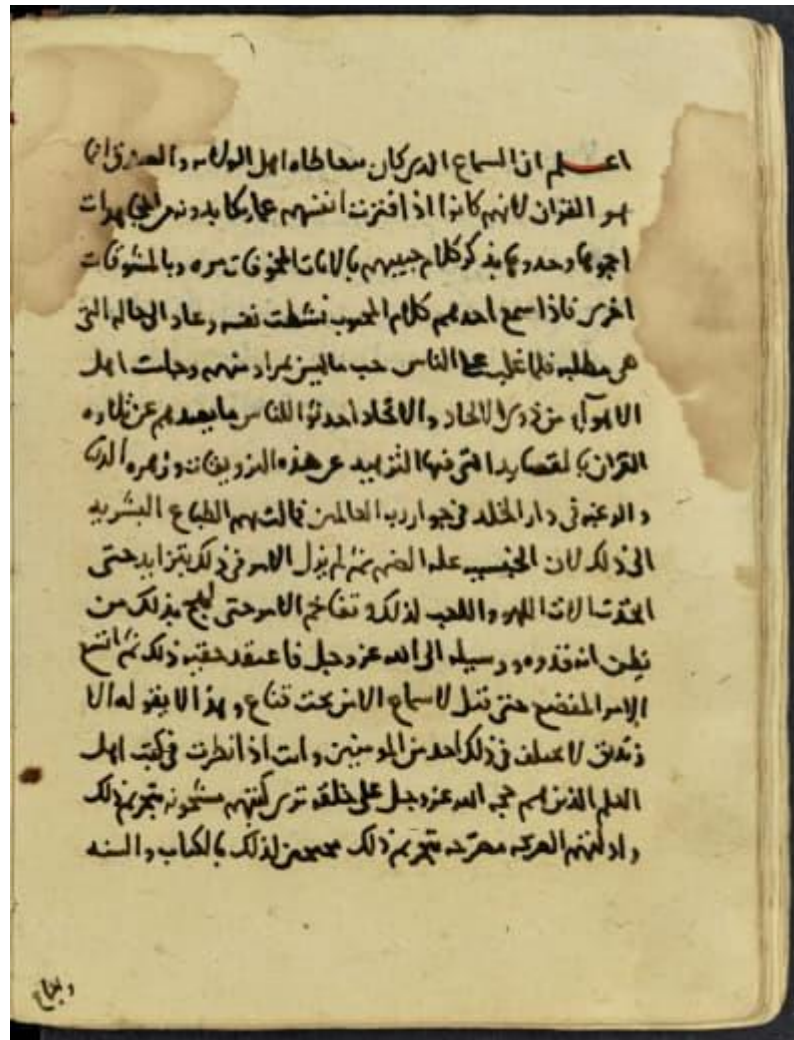 اعلم ان السماع الذي كان يتعاطاه اهل الولايه والصدق انما
هو القران لانهم كانوا اذا فترت انفسهم عما يكابدونه من المجاهدات
احموها وحدوها بذكر كلام حبيبهم بالايات المخوفات مره وبالمشوقات
اخرى فاذا سمع احدهم كلام المحبوب نشطت نفسه وعاد الى حاله التي
هي مطلبه فلما غلب على الناس حب ما ليس بمراد منهم وجات اهل
الاهوآء من ذوي الالحاد والاتحاد احدثوا للناس ما يصدهم عن تلاوه
القران بالقصايد التي فيها التزهيد عن هذه التزويقات وزهره الدنيا
والرغبه في دار الخلد في جوار رب العالمين فمالت بهم الطباع البشريه
الى ذلك لان الجنسيه عله الضم ثم لم يزل الامر في ذلك يتزايد حتى
اتخذت الات اللهو واللعب لذلك وتفاخم الامر حتى لهج بذلك من
يظن انه قدوه ووسيله الى الله عز وجل فاعتقد حقيه ذلك ثم اتسع
الامر المفضح حتى قيل لا سماع الا من تحت قناع وهذا لا يقوله الا
زنديق لا يختلف في ذلك احد من المومنين وانت اذا نظرت في كتب اهل
العلم الذين هم حجه الله عز وجل على خلقه ترى كتبهم مشحونه بتحريم ذلك
وادلتهم الصريحه مصرحه بتحريم ذلك محتجين لذلك بالكتاب والسنه